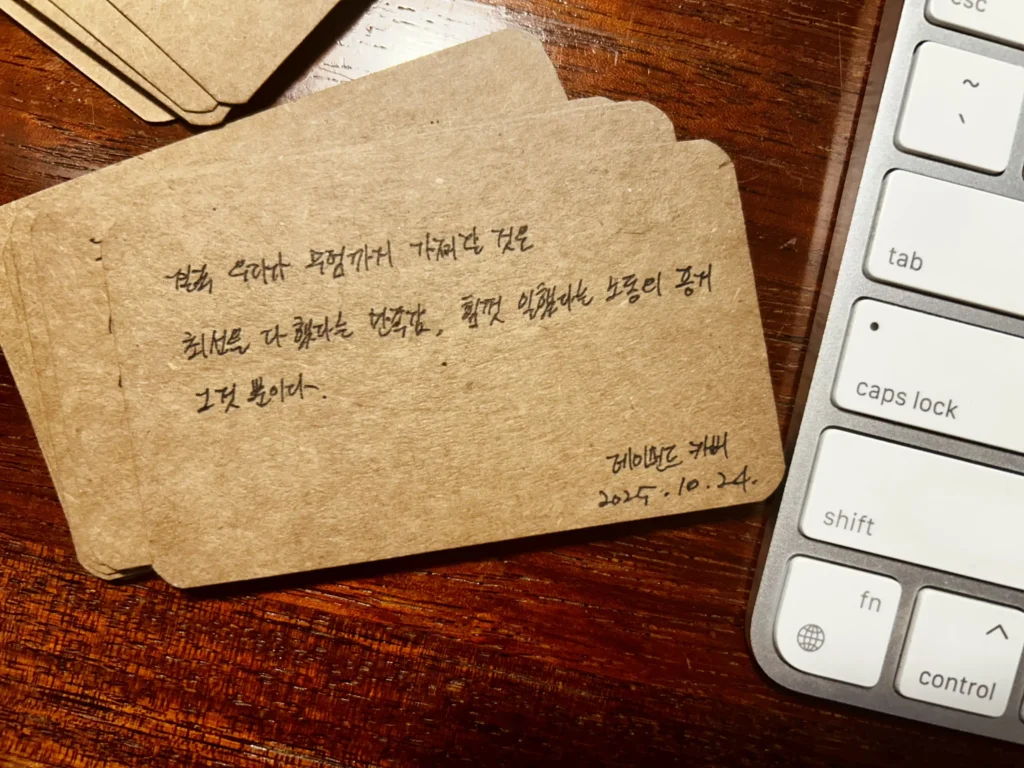 결국 우리가 무덤까지 가져갈 것은
최선을 다 했다는 만족감, 힘껏 일했다는 노동의 증거
그것 뿐이다.
레이먼드 카버
2025.10.24.
esc
~
`
tab
caps lock
shift
fn
control